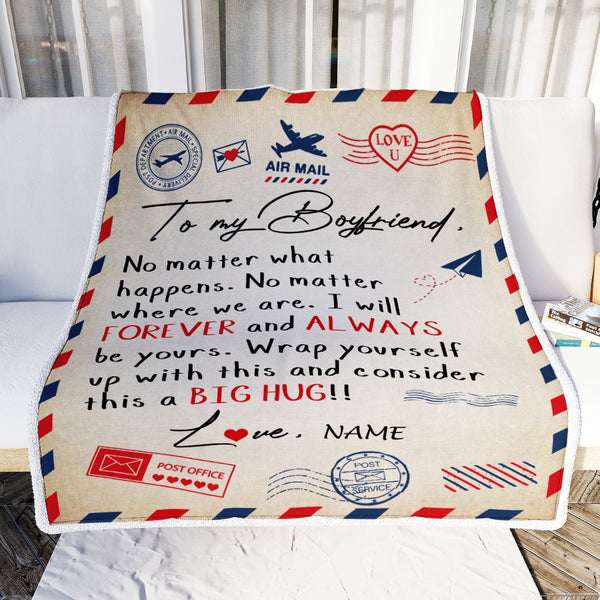 POST DEPARTMENT • AIR MAIL • SPECIAL DELIVERY •
AIR MAIL
LOVE
U
To my Boyfriend,
No matter what
happens. No matter
where we are. I will
FOREVER and ALWAYS
be yours. Wrap yourself
up with this and consider
this a BIG HUG!!
Love, NAME
POST OFFICE
POST
SERVICE